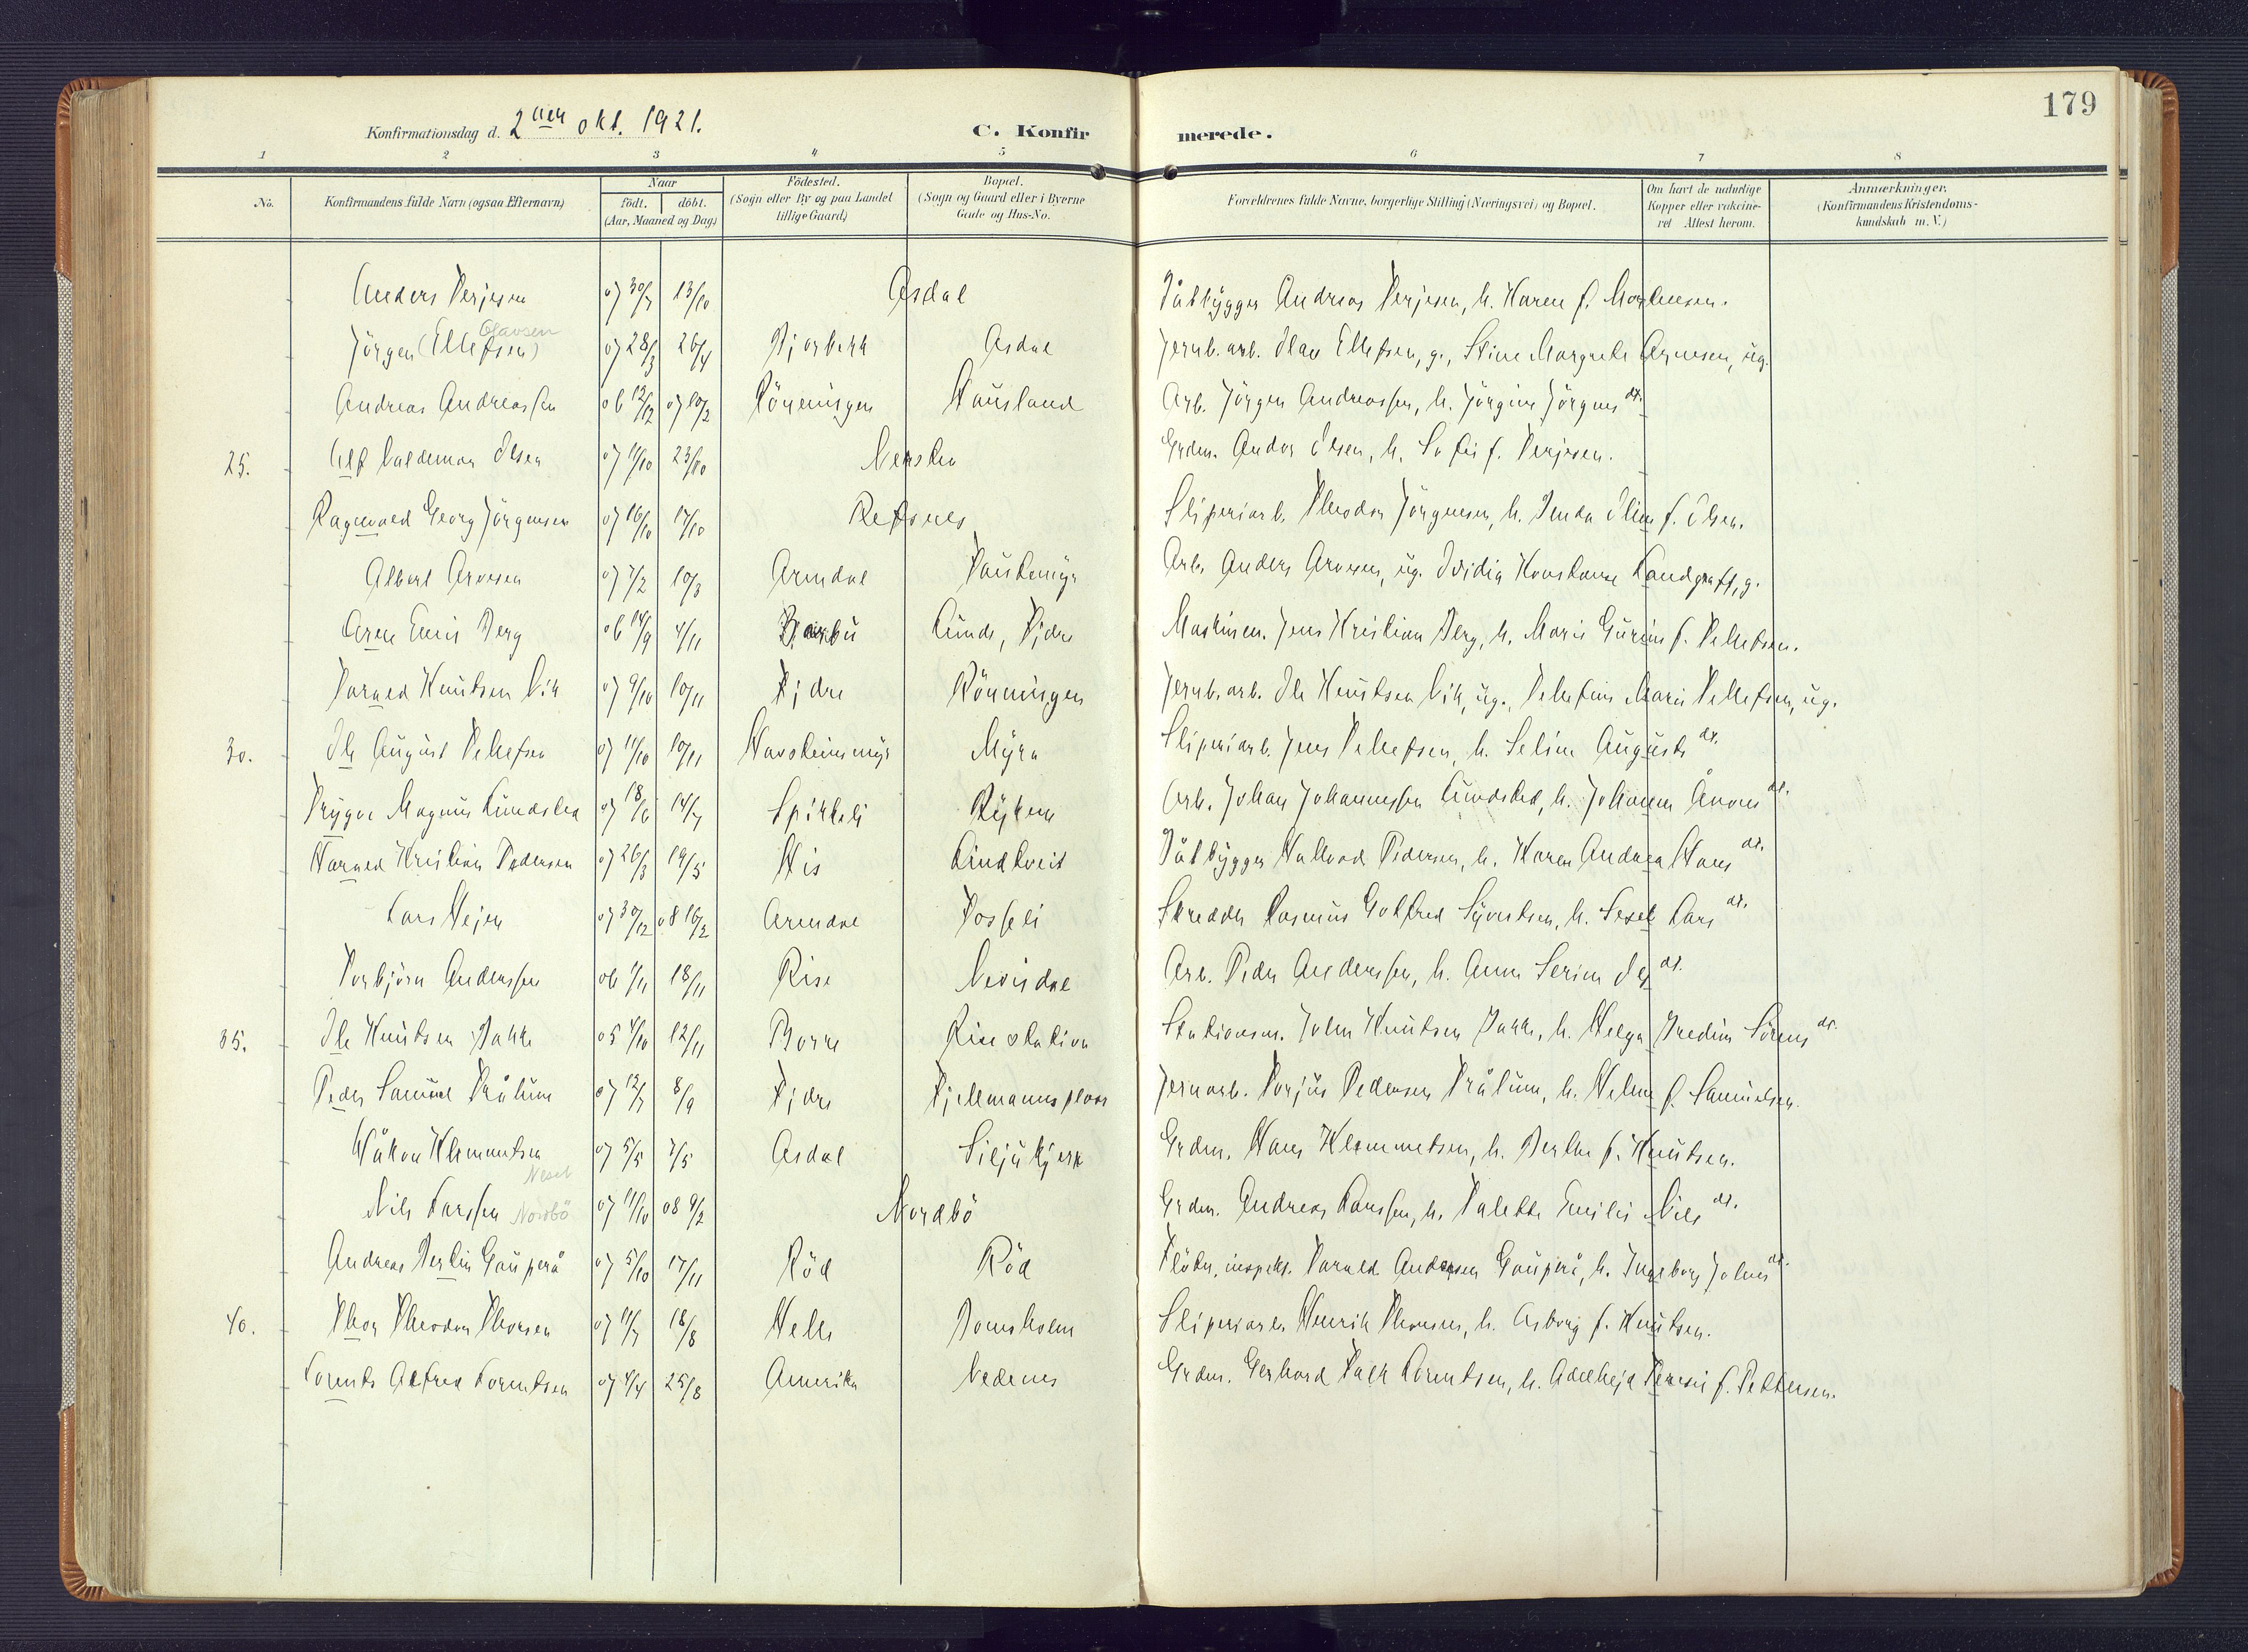 179
Konfirmationsdag d. 2den okt. 1921.
C. Konfirmerede.
1 2 3 4 5 6 7 8
No.
Konfirmandens fulde Navn (ogsaa Efternavn)
Naar
födt. döbt.
(Aar, Maaned og Dag)
Födested.
(Sogn eller By og paa Landet
tillige Gaard)
Bopæl.
(Sogn og Gaard eller i Byerne
Gade og Hus-No.
Forældrenes fulde Navne, borgerlige Stilling (Næringsvei) og Bopæl.
Om havt de naturlige
Kopper eller vakcine-
ret Attest herom.
Anmærkninger.
(Konfirmandens Kristendoms-
kundskab m. V.)
Anders Terjesen 07 30/7 13/10 Asdal Båtbygger Andreas Terjesen, h. Karen f. Mortensen.
Olavsen
Jörgen (Ellefsen) 07 28/3 26/4 Bjorbekk Asdal Jernb. arb. Olav Ellefsen, g., Stine Margrete Arnesen, ug.
Andreas Andreassen 06 12/12 07 10/2 Rönningen Hausland Arb. Jörgen Andreassen, h. Jörgine Jörgens dt.
25. Alf Valdemar Olsen 07 11/10 23/10 Nersten Grdm. Andor Olsen, h. Sofie f. Terjesen.
Ragnvald Georg Jörgensen 07 16/10 17/10 Refsnes Sliperiarb. Theodor Jörgensen, h. Inda Oline f. Olsen.
Albert Arvesen 07 7/2 10/3 Arendal Arb. Anders Arvesen, ug. Ovidia Konstanse Landgraff, g.
Arne Emil Berg 06 14/9 4/11 Barbu Lunde, Fjære Maskinm. Jens Kristian Berg, h. Marie Gurine f. Tellefsen.
Torvald Knutsen Vik 07 9/10 10/11 Fjære Rönningen Jernb. arb. Ole Knutsen Vik, ug., Tellefine Marie Tellefsen, ug.
30. Ole August Tellefsen 07 11/10 10/11 Havsteinmyr Myra Sliperiarb. Jens Tellefsen, h. Seline Augusts dt.
Trygve Magnus Lundsted 07 18/6 14/7 Spikkeli Rykene Arb. Johan Johannessen Lundsted, h. Johanne Ånons dt.
Harald Kristian Pedersen 07 26/3 19/5 His Lindtveit Båtbygger Hallvod Pedersen, h. Karen Andrea Hans dt.
Lars Hejen 07 30/12 08 16/2 Arendal Fosseli Skredder Rasmus Gotfred Syvertsen, h. Sesel Lars dt.
Torbjörn Anderssen 06 1/11 18/11 Rise Nevisdal Arb. Peder Anderssen, h. Anne Serine Ols dt.
35. Ole Knutsen Bakke 05 4/10 12/11 Borre Rise station Stationsm. John Knutsen Bakke, h. Helga Fredine Sörens dt.
Peder Samuel Trålum 07 12/7 8/9 Fjære Fjellmannsplass Jernarb. Torjus Pedersen Trålum, h. Helene f. Samuelsen.
Håkon Klemmetsen 07 5/5 7/5 Asdal Siljukjerr Grdm. Hans Klemmetsen, h. Berthe f. Knutsen.
Nesel
Nils Larssen Nordbö 07 11/10 08 9/2 Nordbö Grdm. Andreas Larssen, h. Talette Emilie Nils dt.
Andreas Bertin Gauperå 07 5/10 17/11 Röd Röd Flötn. inspekt. Torvald Andersen Gauperå, h. Ingeborg Johns dt.
40. Thor Theodor Thorsen 07 11/7 18/8 Helle Bomsholm Sliperiarb. Henrik Thorsen, h. Asborg f. Knutsen.
Lorents Alfred Lorentsen 07 4/4 25/8 Amerika Nedenes Grdm. Gerhard Falk Lorentsen, h. Adelheid Teresie f. Pettersen.